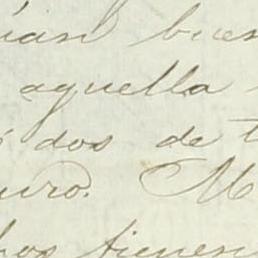 ian buen
aquella
dos de t
uro. M
hos tienen